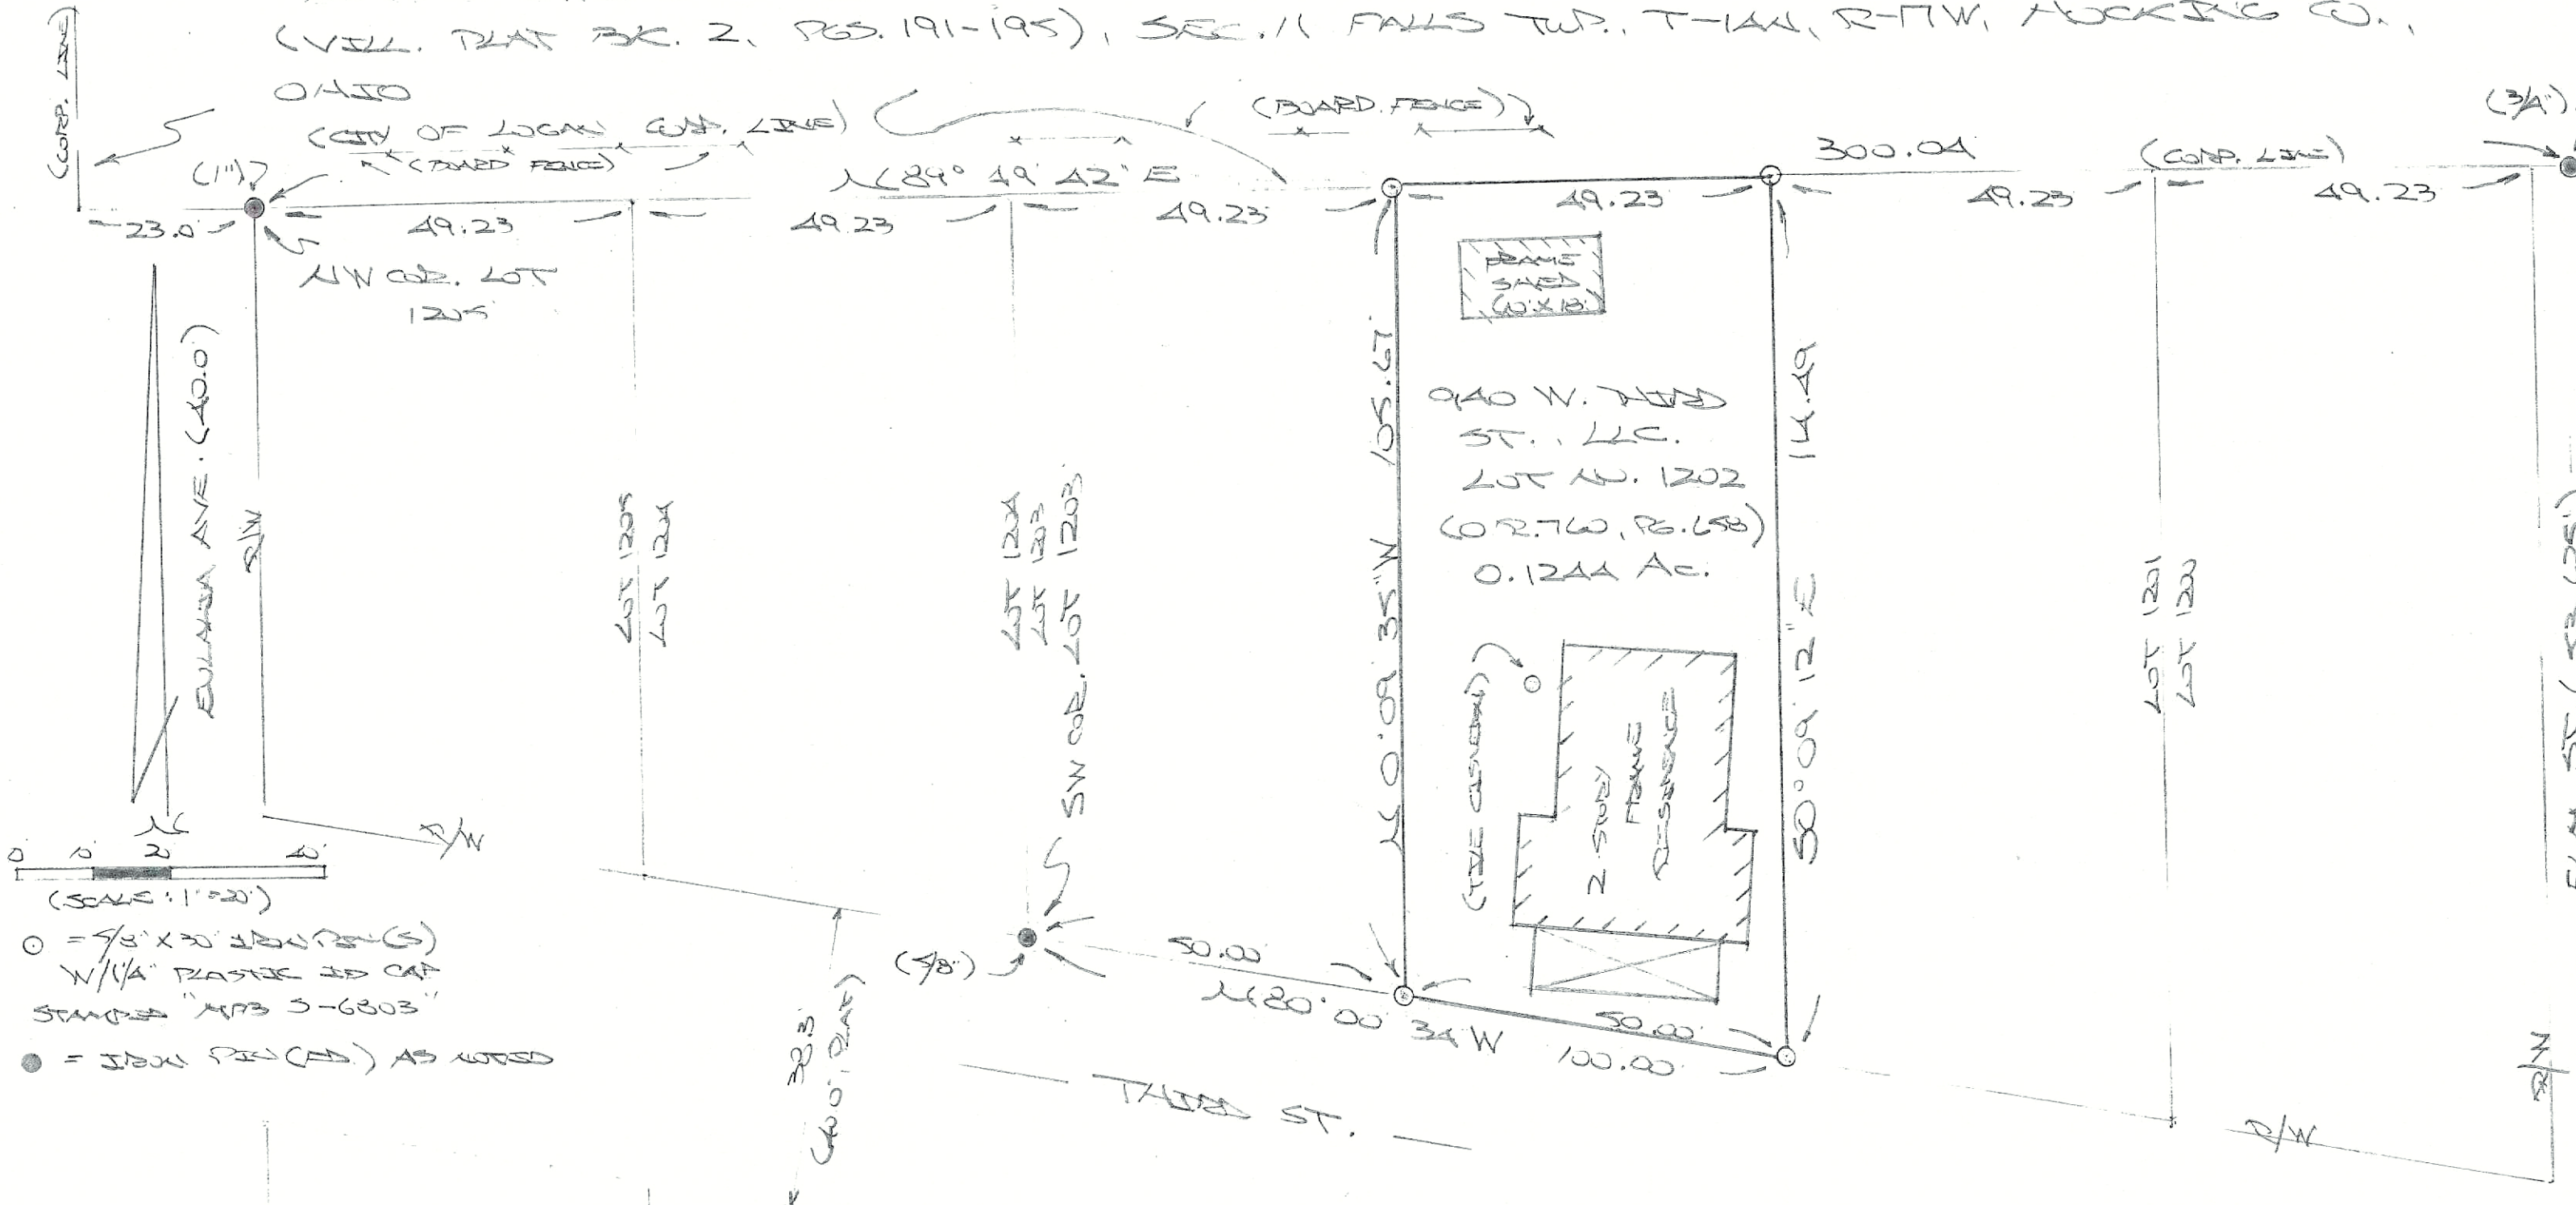 (VILL. PLAT BK. 2, PGS. 191-195), SEC. 11 FALLS TWP., T-14N, R-17W, HOCKING CO.,
OHIO
(CORP. LINE)
(CITY OF LOGAN CORP. LINE)
(BOARD FENCE)
(BOARD FENCE)
(3/4")
(1")
N 89° 49' 42" E
300.04
(CORP. LINE)
23.0'
49.23
49.23
49.23
49.23
49.23
49.23
NW COR. LOT
1205
FRAME
SHED
(10'X18')
EULALIA AVE. (40.0')
R/W
LOT 1205
LOT 1204
LOT 1204
LOT 1203
SW COR. LOT 1203
N 0° 09' 35" W 105.67
940 W. THIRD
ST., LLC.
LOT NO. 1202
(O.R. 760, PG. 658)
0.1244 AC.
S 0° 09' 12" E 114.49
LOT 1201
LOT 1200
(TILE CISTERN)
2 STORY
FRAME
RESIDENCE
N
R/W
0 10' 20' 40'
(SCALE: 1"=20')
= 5/8" X 30" IRON PIN(S)
W/1 1/4" PLASTIC ID CAP
STAMPED "MPB S-6803"
= IRON PIN (FD.) AS NOTED
38.3'
(40.0', PLAT)
(5/8")
50.00
N 80° 00' 34 W
50.00
100.00
THIRD ST.
R/W
R/W